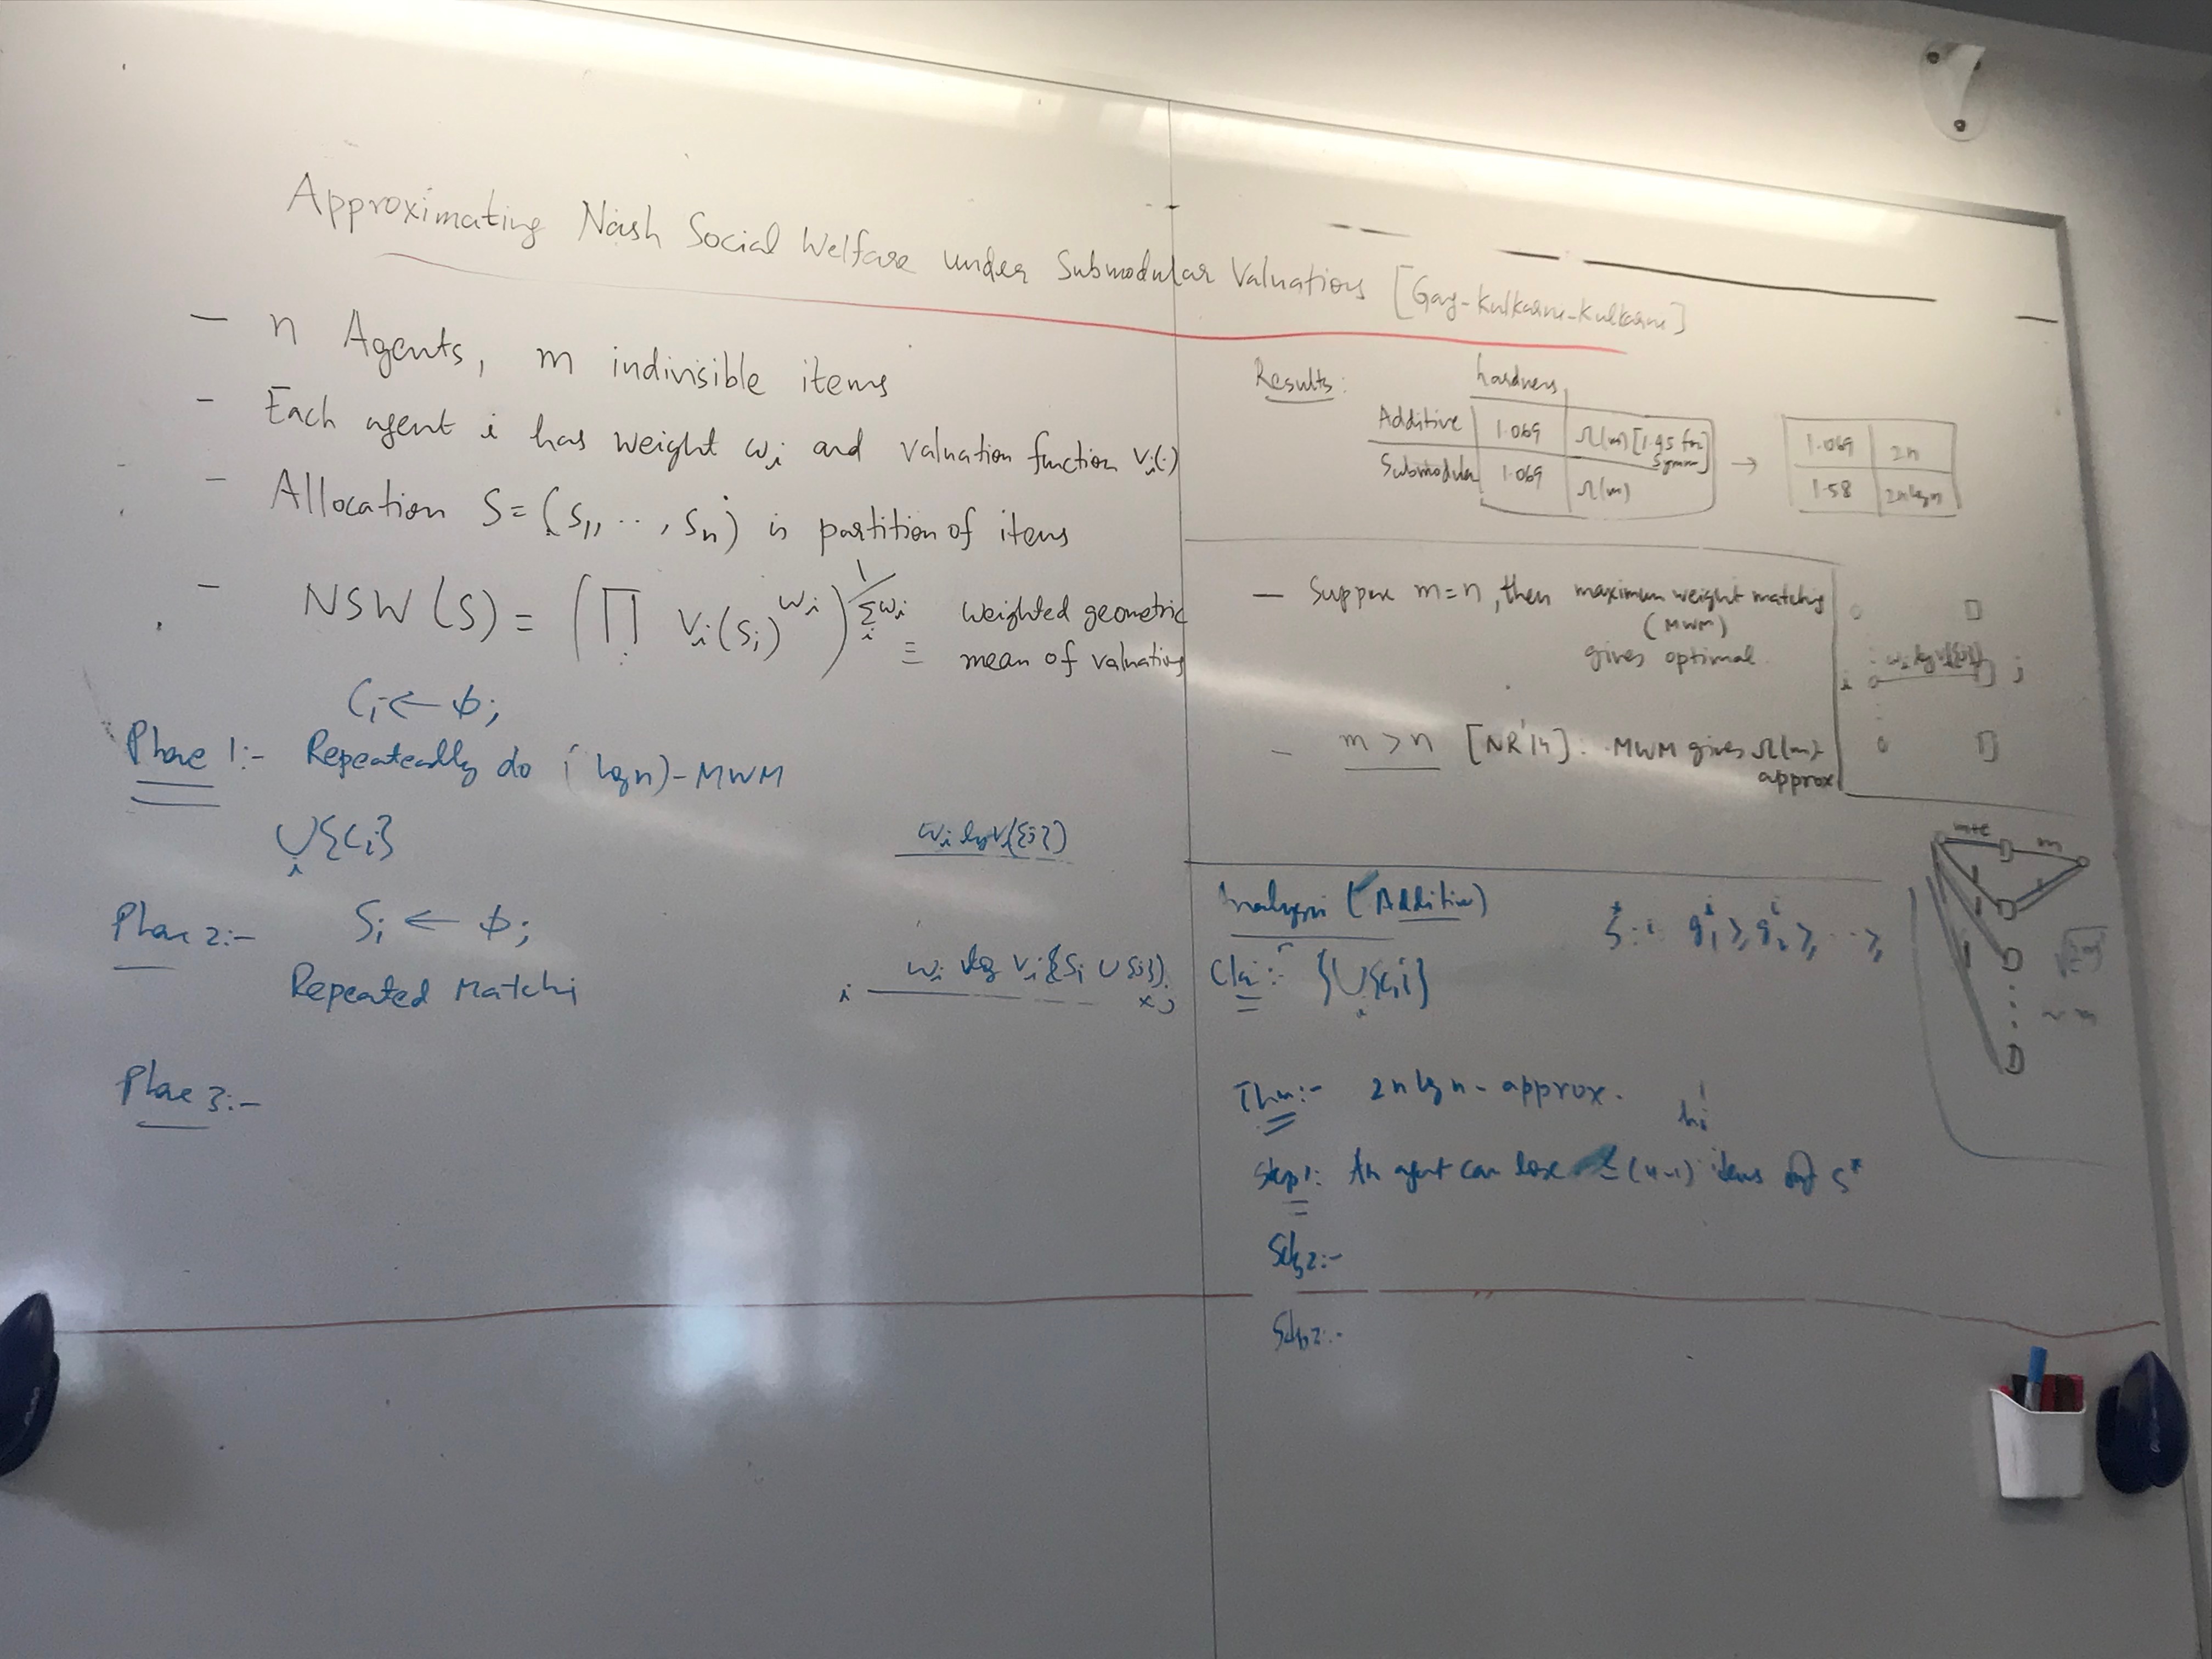 Approximating Nash Social Welfare under Submodular Valuations [Garg-Kulkarni-Kulkarni]
- n Agents, m indivisible items
- Each agent i has weight wi and valuation function vi(.)
- Allocation S = (S1, ..., Sn) is partition of items
- NSW(S) = (∏ vi(Si)^wi)^(1/Σi wi) ≡ weighted geometric
mean of valuations
Ci ← ϕ;
Phase 1:- Repeatedly do (lg n)-MWM
∪i{Ci}
wi lg vi({j})
Phase 2:- Si ← ϕ;
Repeated Matchi
i wi log vi({Si ∪ {j}}) j
Phase 3:-
Results:
hardness
Additive 1.069 Ω(m) [1.45 for
symm]
Submodular 1.069 Ω(m)
→
1.069 2n
1.58 2n lg n
- Suppose m=n, then maximum weight matching
(MWM)
gives optimal.
i j
- m > n [NR'14]: MWM gives Ω(m)
approx
m+ε m
Analysis (Additive)
S*: i g1^i ≥ g2^i ≥ ... ≥
Clm:- {∪i{Ci}
~ m
Thm:- 2n lg n - approx.
hi
Step 1: An agent can lose ≤ (n-1) items of S*
Step 2:-
Step 2:-